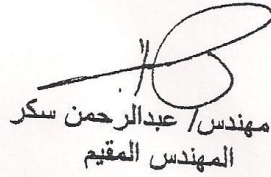 مهندس/ عبدالرحمن سكر
المهندس المقيم